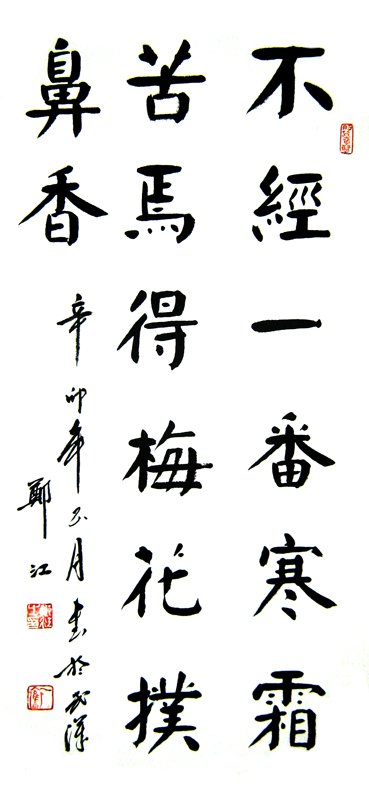 不經一番寒霜
苦焉得梅花撲
鼻香
辛卯年正月書於武漢
鄭江